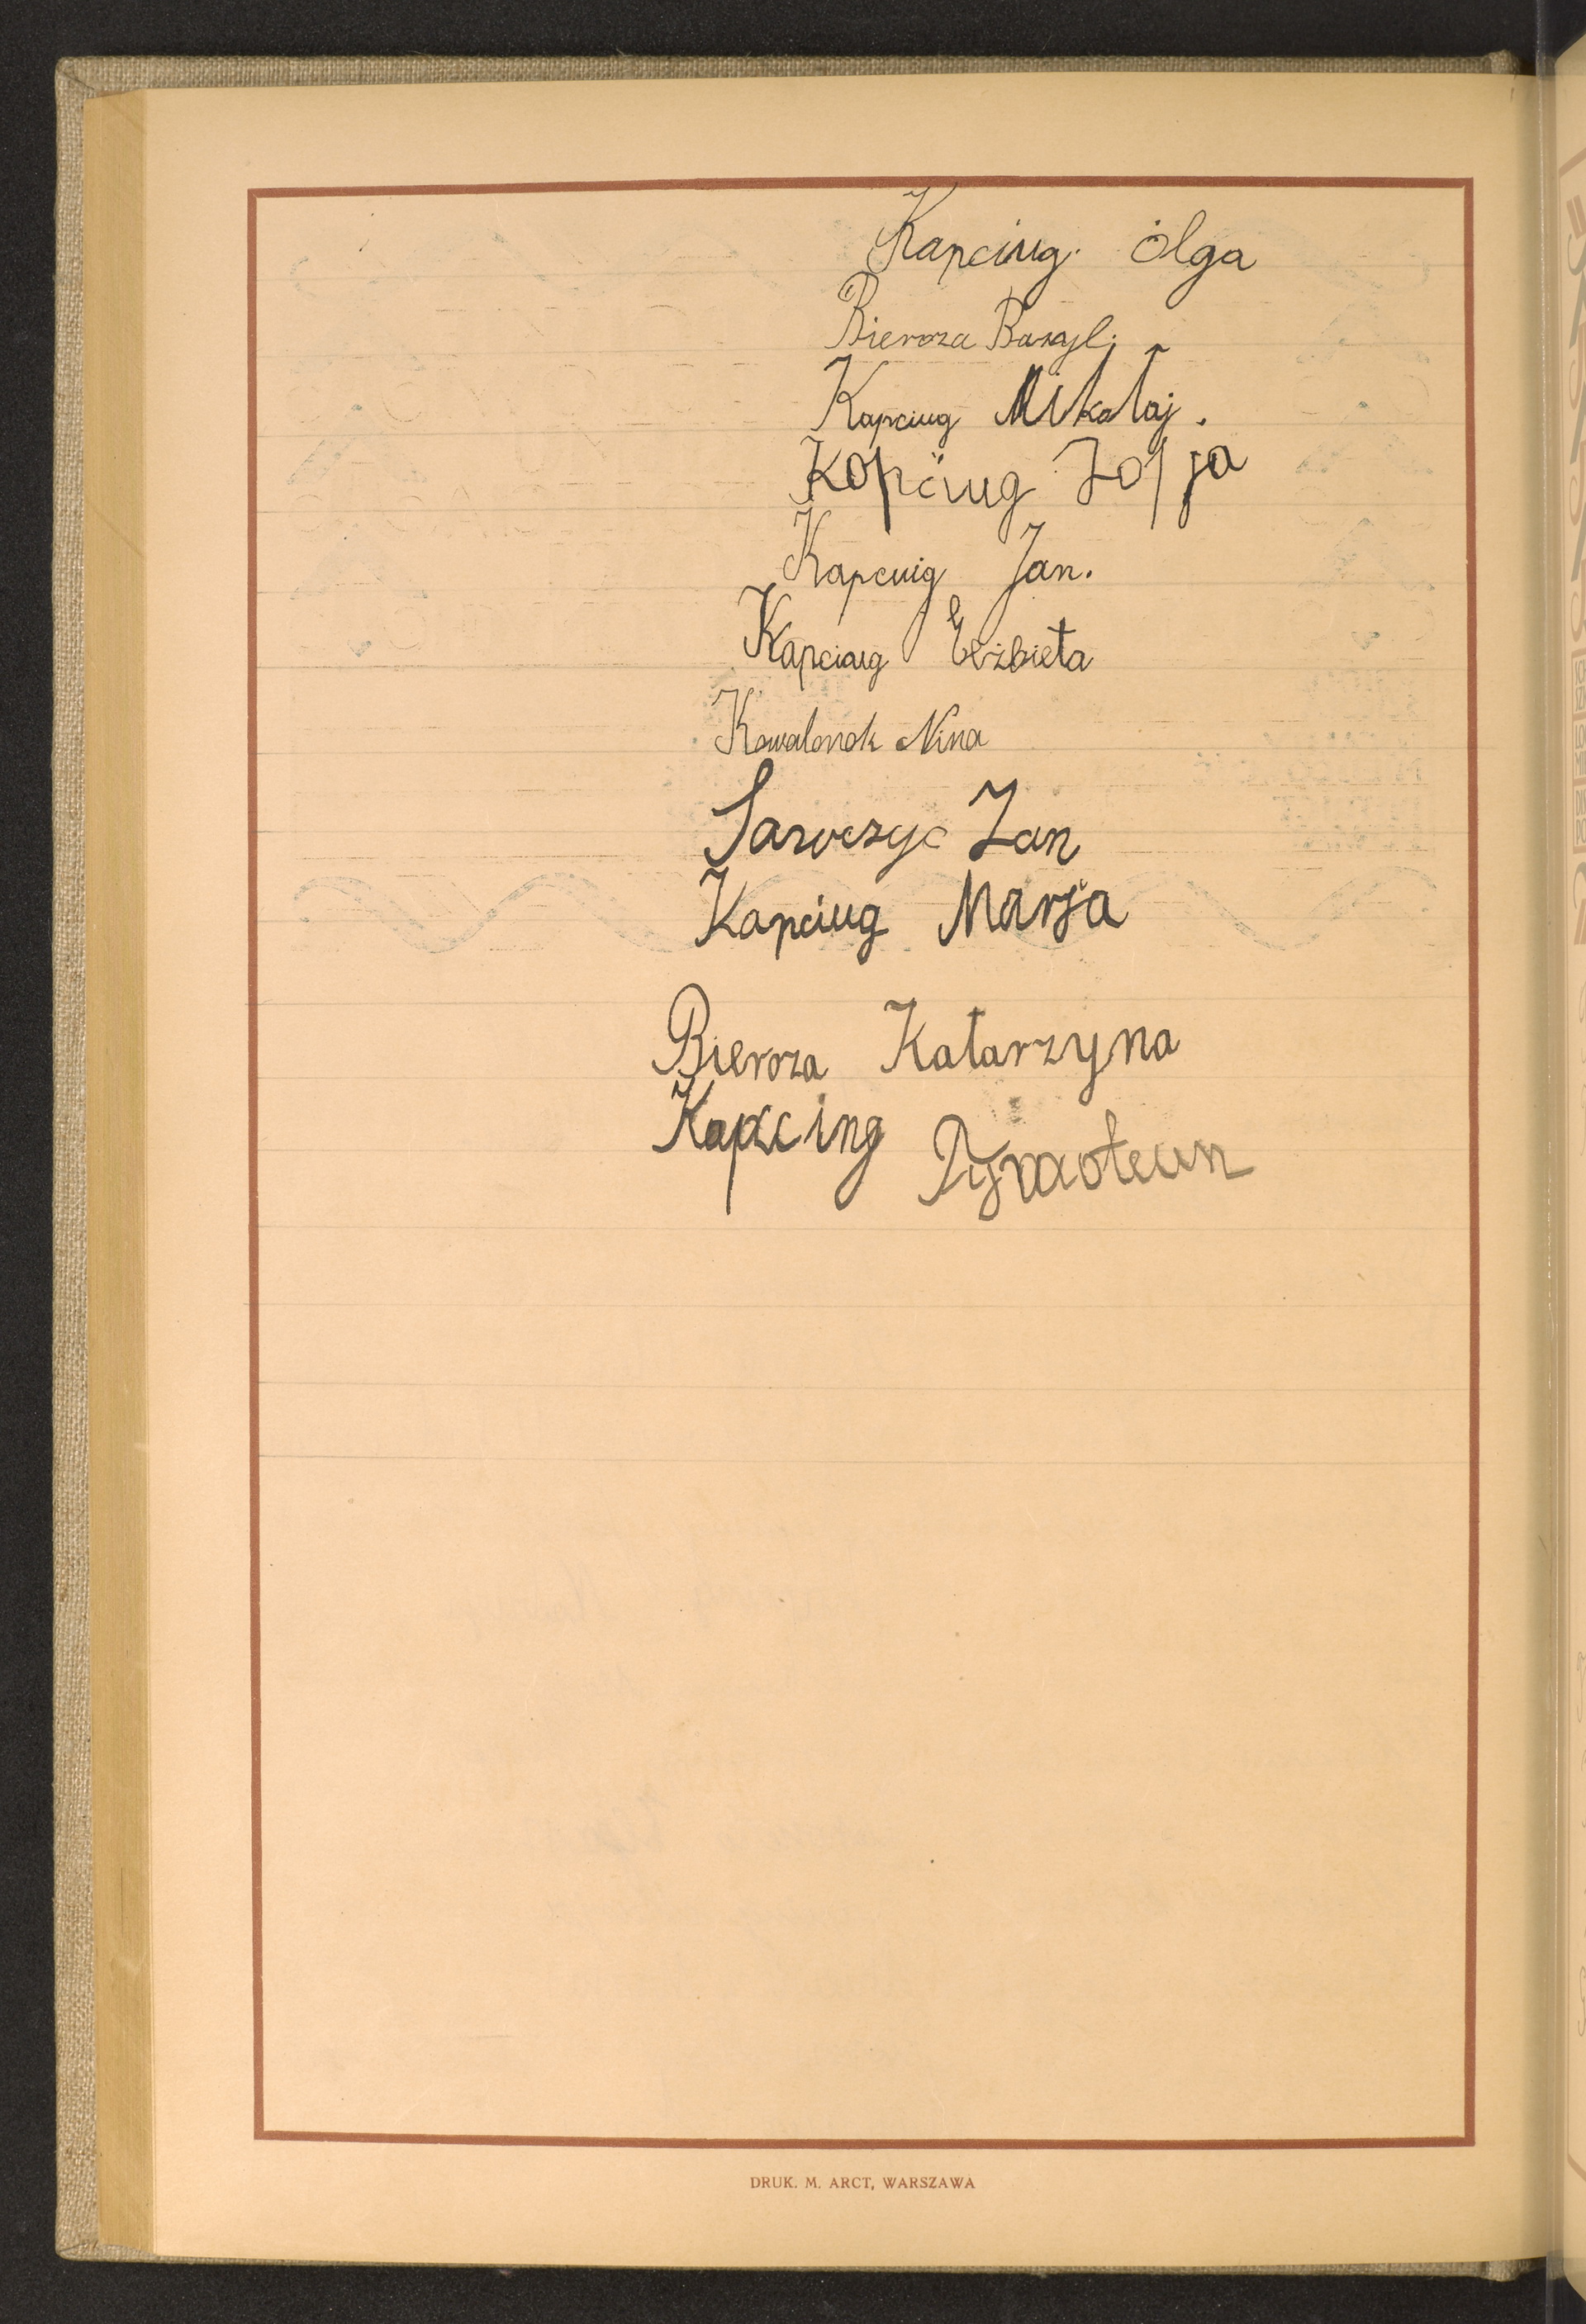 Kapciug. Olga
Bieroza Bazyl.
Kapciug Mikołaj.
Kopciug Zofja
Kapciug Jan.
Kapciug Elżbieta
Kowalonok Nina
Jan
Kapciug Marja
Bieroza Katarzyna
Kapciug
DRUK. M. ARCT, WARSZAWA